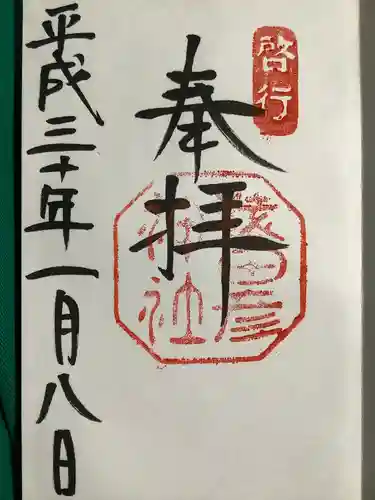 啓行
奉拝
平成三十年一月八日